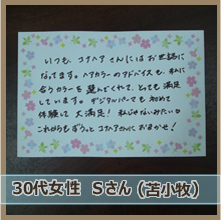 いつも コナヘア さんには お世話に
なってます。ヘアカラーの アドバイスも、私に
合うカラーを 選んでくれて、とても満足
しています。デジタルパーマも 初めて
体験して 大満足! 私じゃないみたい♡
これからも ずうっと コナヘアさんに おまかせ!
30代女性 Sさん(苫小牧)